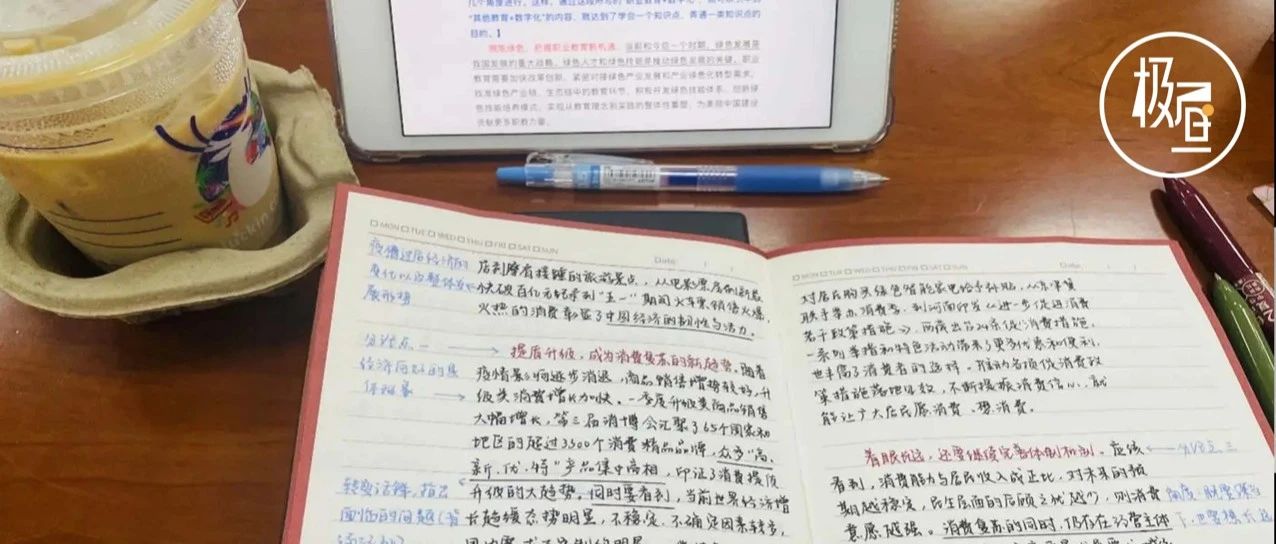 几个角度进行。这样，通过这段所写的"职业教育+数字化"，
"其他教育+数字化"的内容，就达到了学会一个知识点、弄通一类知识点的
目的。】
拥抱绿色，把握职业教育新机遇。当前和今后一个时期，绿色发展是
我国发展的重大战略，绿色人才和绿色技能是推动绿色发展的关键。职业
教育需要加快改革创新，紧密对接绿色产业发展和产业绿色化转型需求，
找准绿色产业链、生态链中的教育环节，积极开发绿色技能体系，创新绿
色技能培养模式，实现从教育理念到实践的整体性重塑，为美丽中国建设
贡献更多职教力量。
极昼
MON TUE WED THU FRI SAT SUN
Date: / /
疫情过后经济的
变化以及整体发
展形势
店到摩肩接踵的旅游景点，从电影票房
快破百亿元纪录到"五一"期间火车票销售火爆，
火热的消费彰显了中国经济的韧性与活力。
分论点一
经济向好的具
体背景
提质升级，成为消费复苏的新趋势。随着
疫情影响逐步消退，商品销售增势较好，升
级类消费增长加快。一季度升级类商品销售
大幅增长，第三届消博会汇聚了65个国家和
地区的超过3300个消费精品品牌，众多"高、
新、优、特"产品集中亮相，印证了消费提质
升级的大趋势。同时要看到，当前世界经济增
长趋缓态势明显，不稳定、不确定因素较多，
转变话锋，指出
面临的问题
MON TUE WED THU FRI SAT SUN
Date: / /
对居民购买绿色智能家电给予补贴，从京津冀
联手举办消费季，到河南印发《进一步促进消费
若干政策措施》，两高出台24条促消费措施，
一系列举措和特色活动带来了更多优惠和便利，
也丰富了消费者的选择。推动各项促消费政
策措施落地见效，不断提振消费信心，就
能让广大居民愿消费、想消费。
着眼长远，还要继续完善体制机制。应该
分论点三
看到，消费能力与居民收入成正比，对未来的预
期越稳定，民生层面的后顾之忧越少，则消费
意愿越强。消费复苏的同时，仍存在经营主体